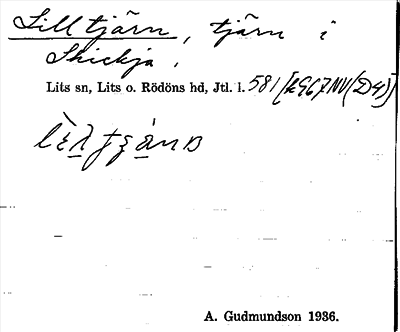 Lilltjärn, tjärn i
Skickja.
Lits sn, Lits o. Rödöns hd, Jtl. l. 581 [k967NV(D4)]
A. Gudmundson 1936.